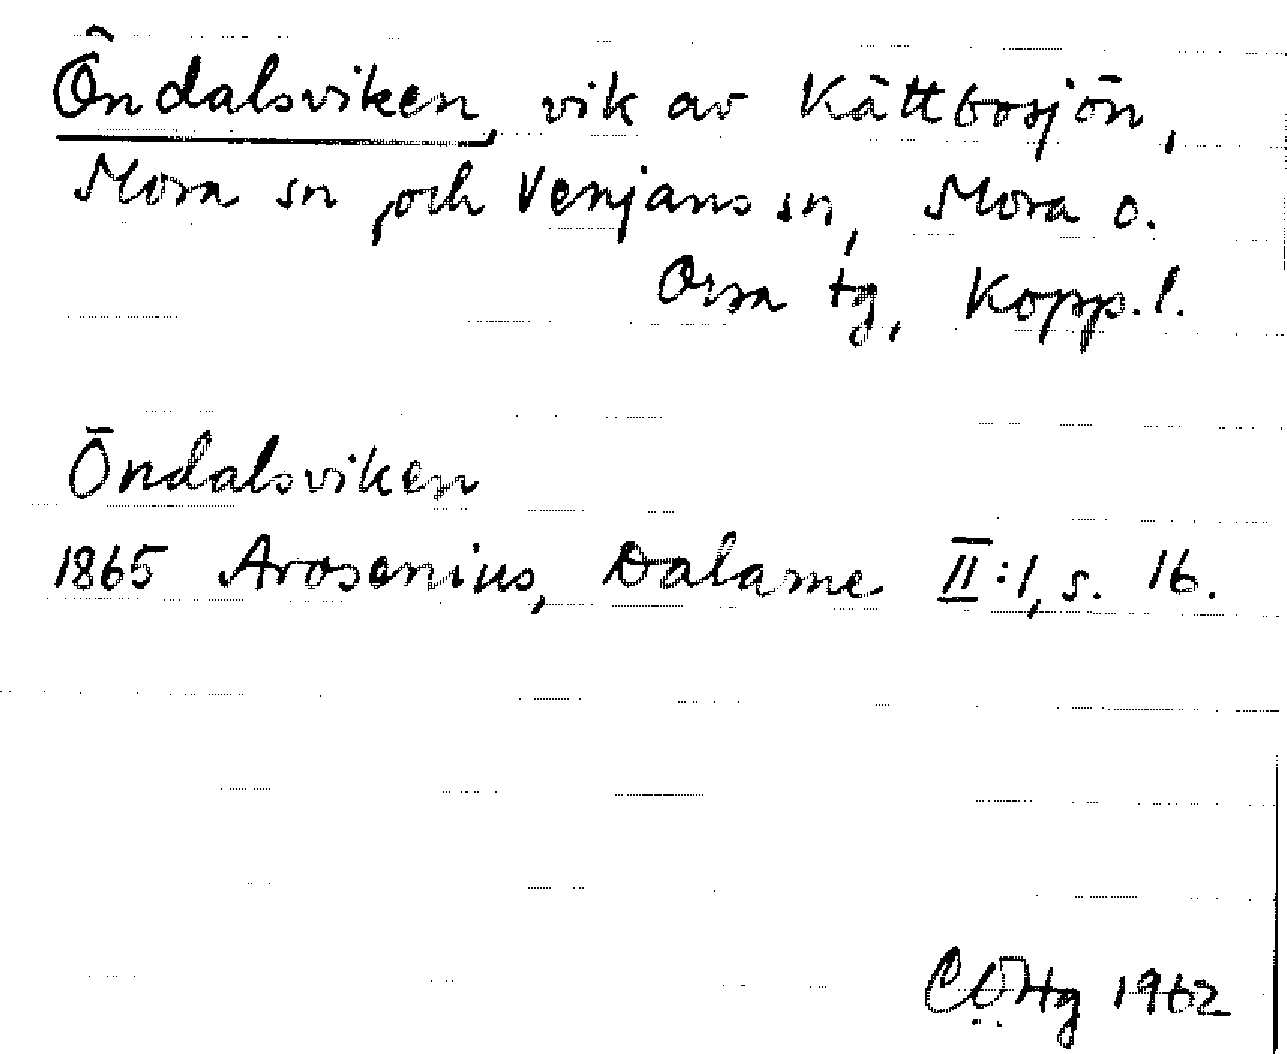 Öndalsviken, vik av Kättbosjön,
Mora sn och Venjans sn, Mora o.
Orsa tg, Kopp. l.
Öndalsviken
1865 Arosenius, Dalarne II:1, s. 16.
1962